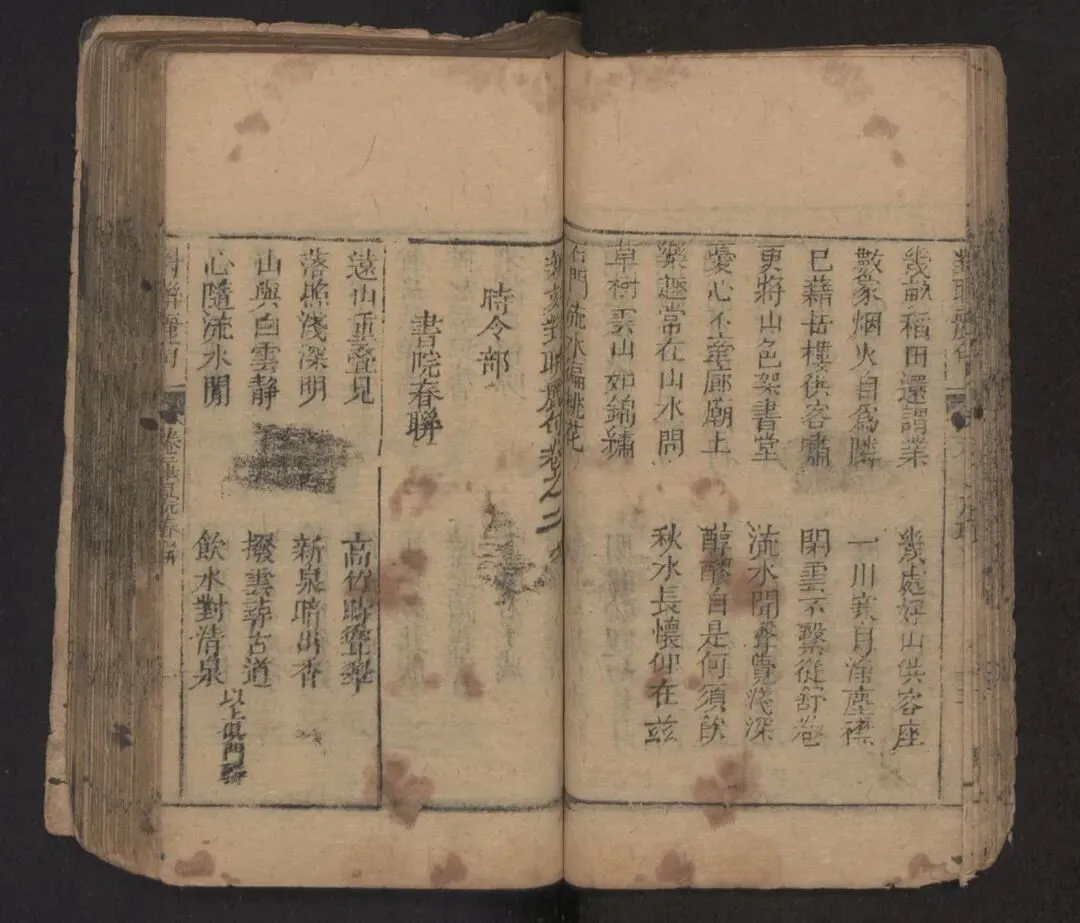 幾畝稻田還謂業
幾處好山供客座
數家烟火自爲隣
一川賓月淨塵襟
已藉岳樓供客嘯
閑雲不繫從舒卷
更將山色架書堂
流水聞聲覺淺深
憂心不
廊廟上
醇醪自是何須飲
樂趣常在山水間
秋水長懷仰在茲
草樹雲山如錦繡
門流水
桃花
卷之二
時令部
書院春聯
遠山重疊見
高竹時聳翠
落照淺深明
新泉暗出香
山與白雲靜
撥雲尋古道
心隨流水閒
飲水對清泉
以上
門